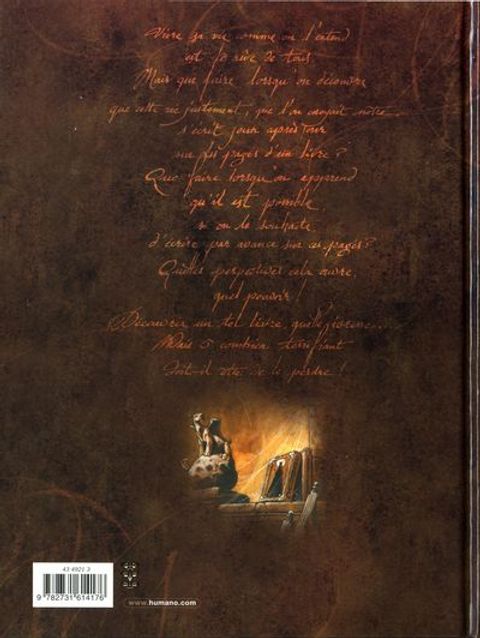 Vivre sa vie comme on l'entend
est le rêve de tous
Mais que faire lorsqu'on découvre
que cette vie justement, que l'on croyait nôtre
s'écrit jour après jour
sur les pages d'un livre ?
Que faire lorsqu'on apprend
qu'il est possible
si on le souhaite
d'écrire par avance sur ces pages ?
Quelles perspectives cela ouvre,
quel pouvoir !
Découvrir un tel livre, quelle
Mais ô combien terrifiant
doit-il être de le perdre !
43 4921 3
9 782731 614176
www.humano.com